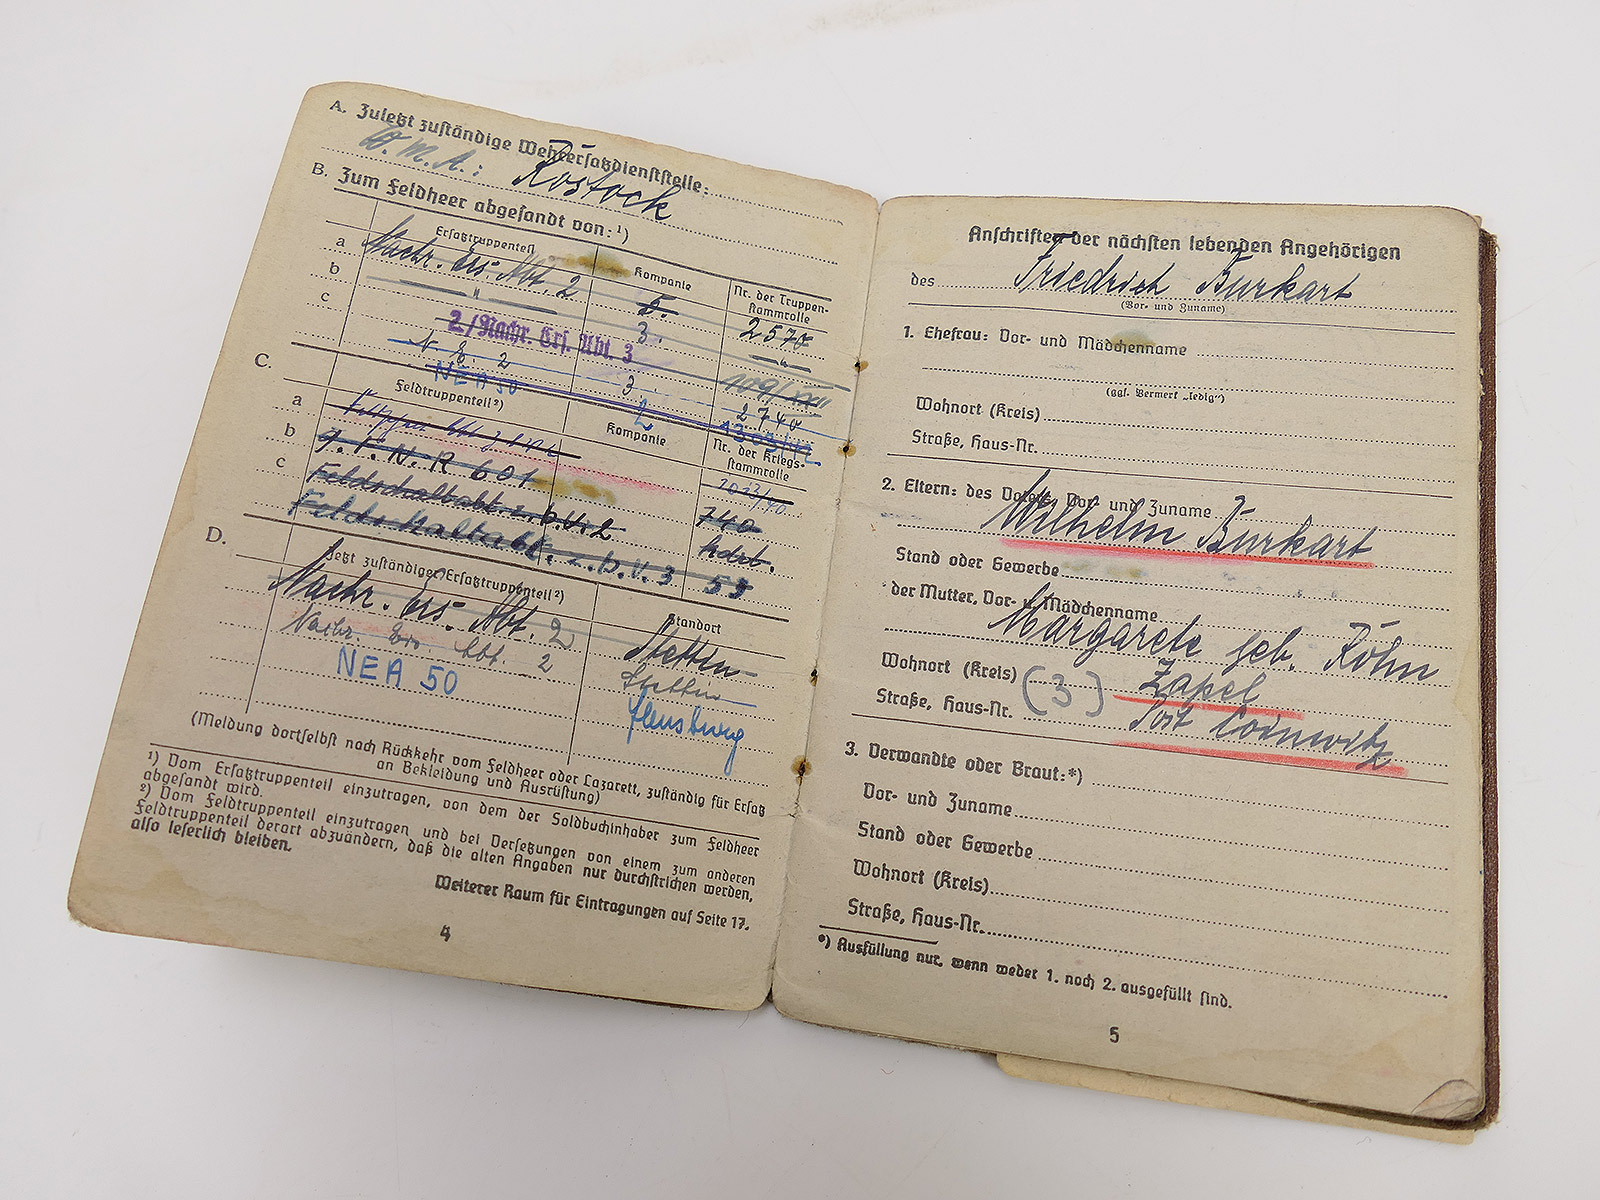 A. Zuletzt zuständige Wehrersatzdienststelle:
W. M. A.: Rostock
B. Zum Feldheer abgesandt von:¹)
Ersatztruppenteil Kompanie Nr. der Truppenstammrolle
a Nachr. Ers. Abt. 2 5. 2570
b " 3. "
c 2/Nachr. Ers. Abt. 3
N E 2 3. 2740
NEA 50 2
C. Feldtruppenteil²) Kompanie Nr. der Kriegsstammrolle
a
b g. F. N. R 601 740
c Feldschaltabt. z. b. V. 2
Feldschaltabt. z. b. V. 3 53
D. Jetzt zuständiger Ersatztruppenteil²) Standort
Nachr. Ers. Abt. 2 Stettin
Nachr. Ers. Abt. 2 Stettin
NEA 50 Flensburg
(Meldung dortselbst nach Rückkehr vom Feldheer oder Lazarett, zuständig für Ersatz
an Bekleidung und Ausrüstung)
¹) Vom Ersatztruppenteil einzutragen, von dem der Soldbuchinhaber zum Feldheer
abgesandt wird.
²) Vom Feldtruppenteil einzutragen und bei Versetzungen von einem zum anderen
Feldtruppenteil derart abzuändern, daß die alten Angaben nur durchstrichen werden,
also leserlich bleiben.
Weiterer Raum für Eintragungen auf Seite 17.
4
Anschriften der nächsten lebenden Angehörigen
des Friedrich Burkart
(Vor- und Zuname)
1. Ehefrau: Vor- und Mädchenname
(ggf. Vermerk „ledig")
Wohnort (Kreis)
Straße, Haus-Nr.
2. Eltern: des Vaters, Vor- und Zuname
Wilhelm Burkart
Stand oder Gewerbe
der Mutter, Vor- u. Mädchenname
Margarete geb. Röhn
Wohnort (Kreis) (3) Zapel
Straße, Haus-Nr. Post
3. Verwandte oder Braut:*)
Vor- und Zuname
Stand oder Gewerbe
Wohnort (Kreis)
Straße, Haus-Nr.
*) Ausfüllung nur, wenn weder 1. noch 2. ausgefüllt sind.
5